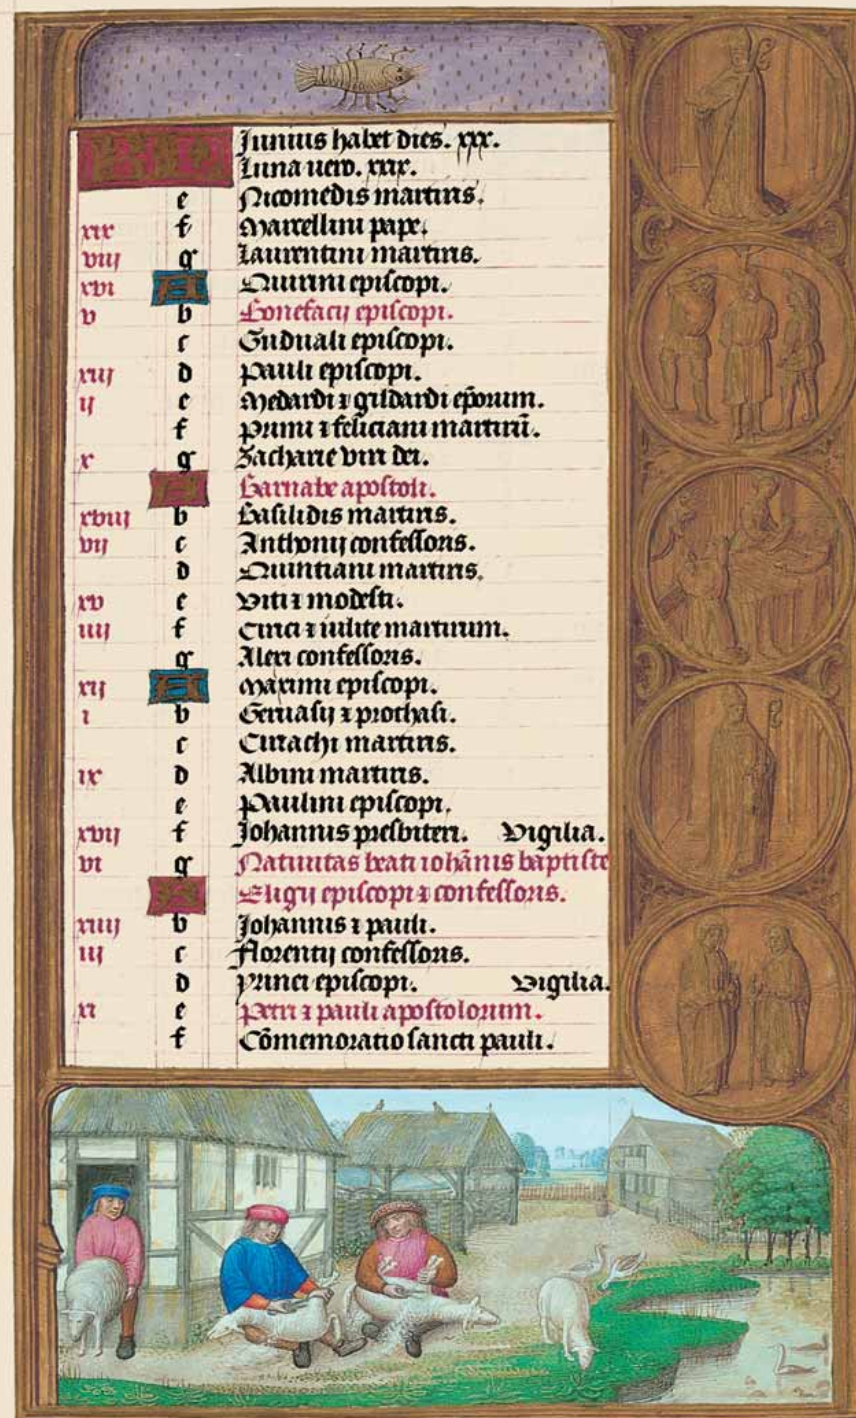 KL Junius habet dies. xxx.
Luna vero. xxix.
e Nicomedis martiris.
xix f Marcellini pape.
viij g Laurentini martiris.
xvi A Quirini episcopi.
v b Bonefacij episcopi.
c Guduali episcopi.
xiij d Pauli episcopi.
ij e Medardi ⁊ gildardi ep̃orum.
f Primi ⁊ feliciani martirū.
x g Zacharie viri dei.
A Barnabe apostoli.
xviij b Basilidis martiris.
vij c Anthonij confessoris.
d Quintiani martiris.
xv e Viti ⁊ modesti.
iiij f Cirici ⁊ iulite martirum.
g Alexi confessoris.
xij A Maximi episcopi.
i b Geruasij ⁊ prothasi.
c Ciriachi martiris.
ix d Albini martiris.
e Paulini episcopi.
xvij f Johannis presbiteri. Vigilia.
vi g Natiuitas beati iohānis baptiste
A Eligij episcopi ⁊ confessoris.
xiiij b Johannis ⁊ pauli.
iij c Florentij confessoris.
d episcopi. Vigilia.
xi e Petri ⁊ pauli apostolorum.
f Cōmemoratio sancti pauli.